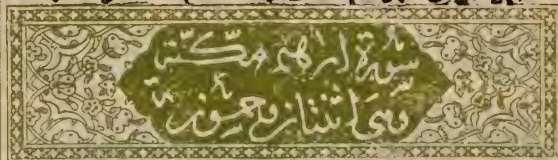 سورة ابرهيم مكية
وهى اثنتان وخمسون